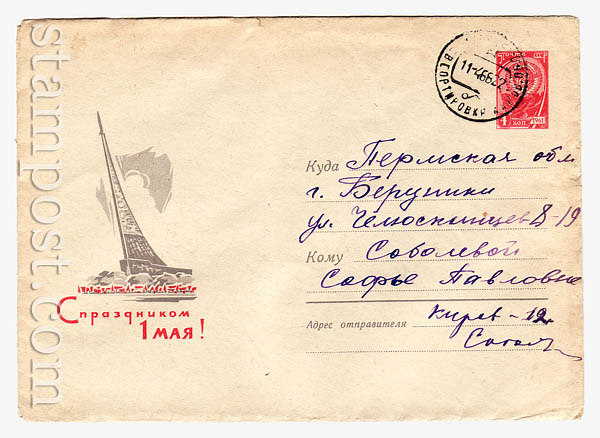 stampost.com
ПОЧТА СССР
11-4 66 22
СОРТИРОВКА
4 КОП 1961
Куда Пермская обл
г. Березники
ул. Челюскинцев 8-19
Кому Соболевой
Софье Павловне
Адрес отправителя Киров-12
С праздником
1 МАЯ!